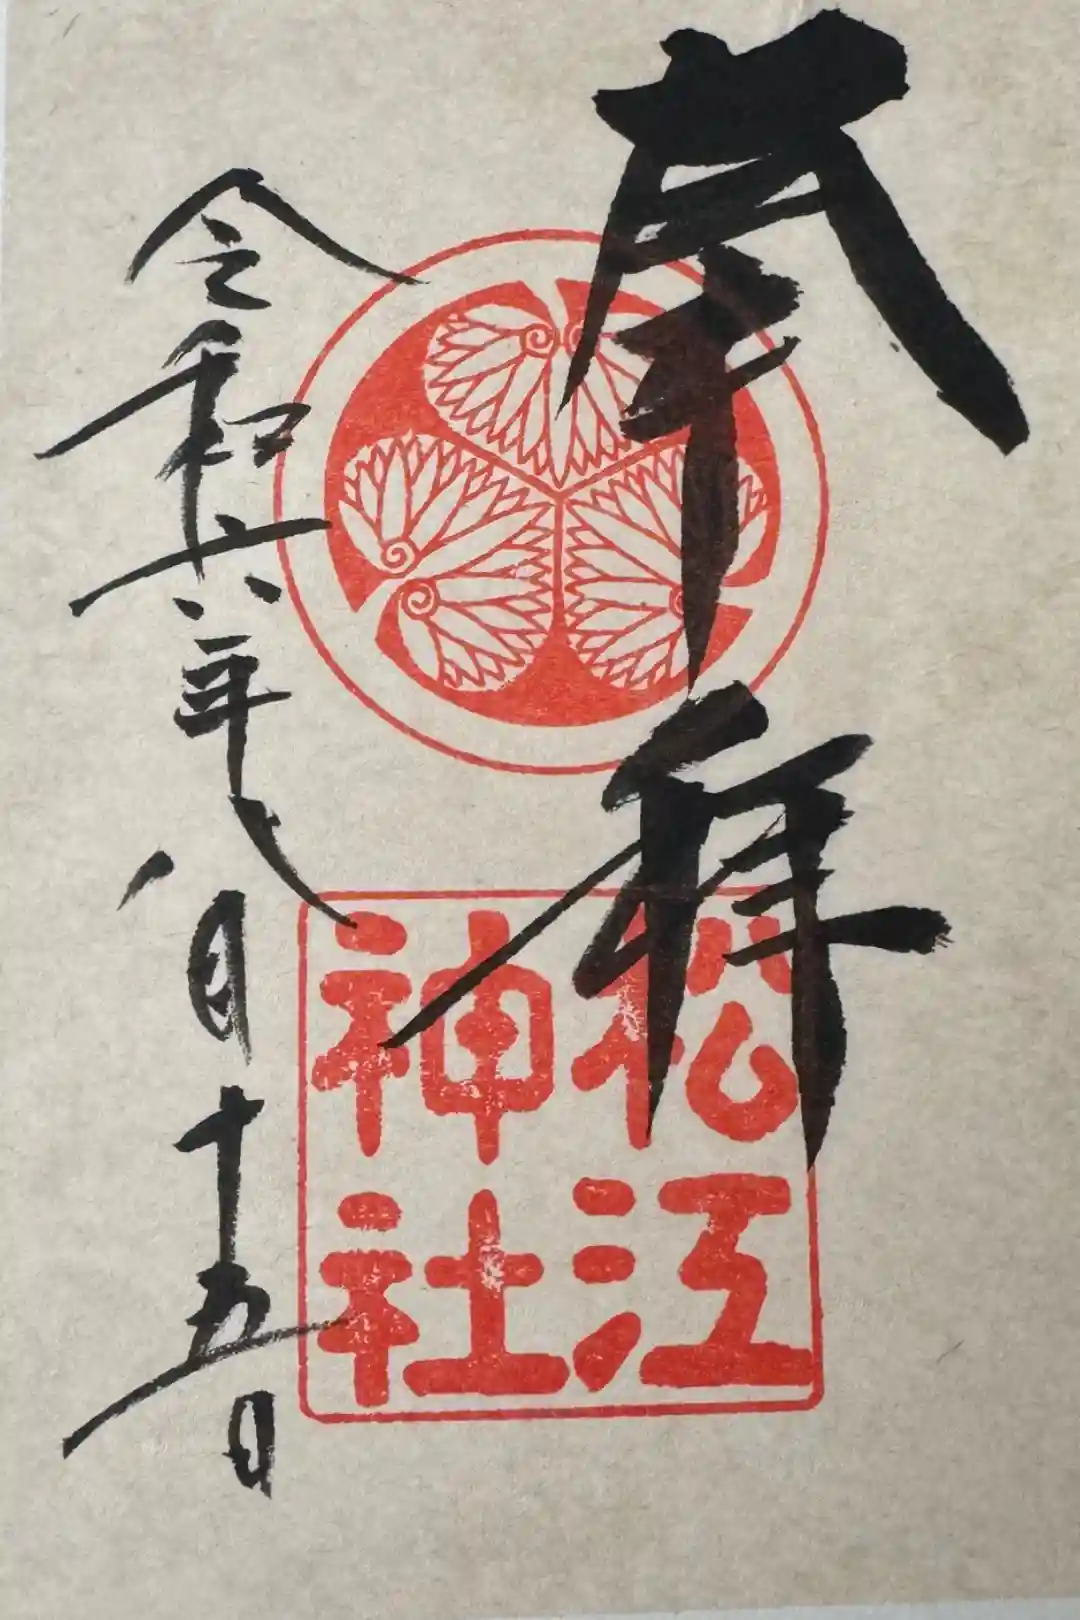 奉拝
松江
神社
令和六年八月十五日